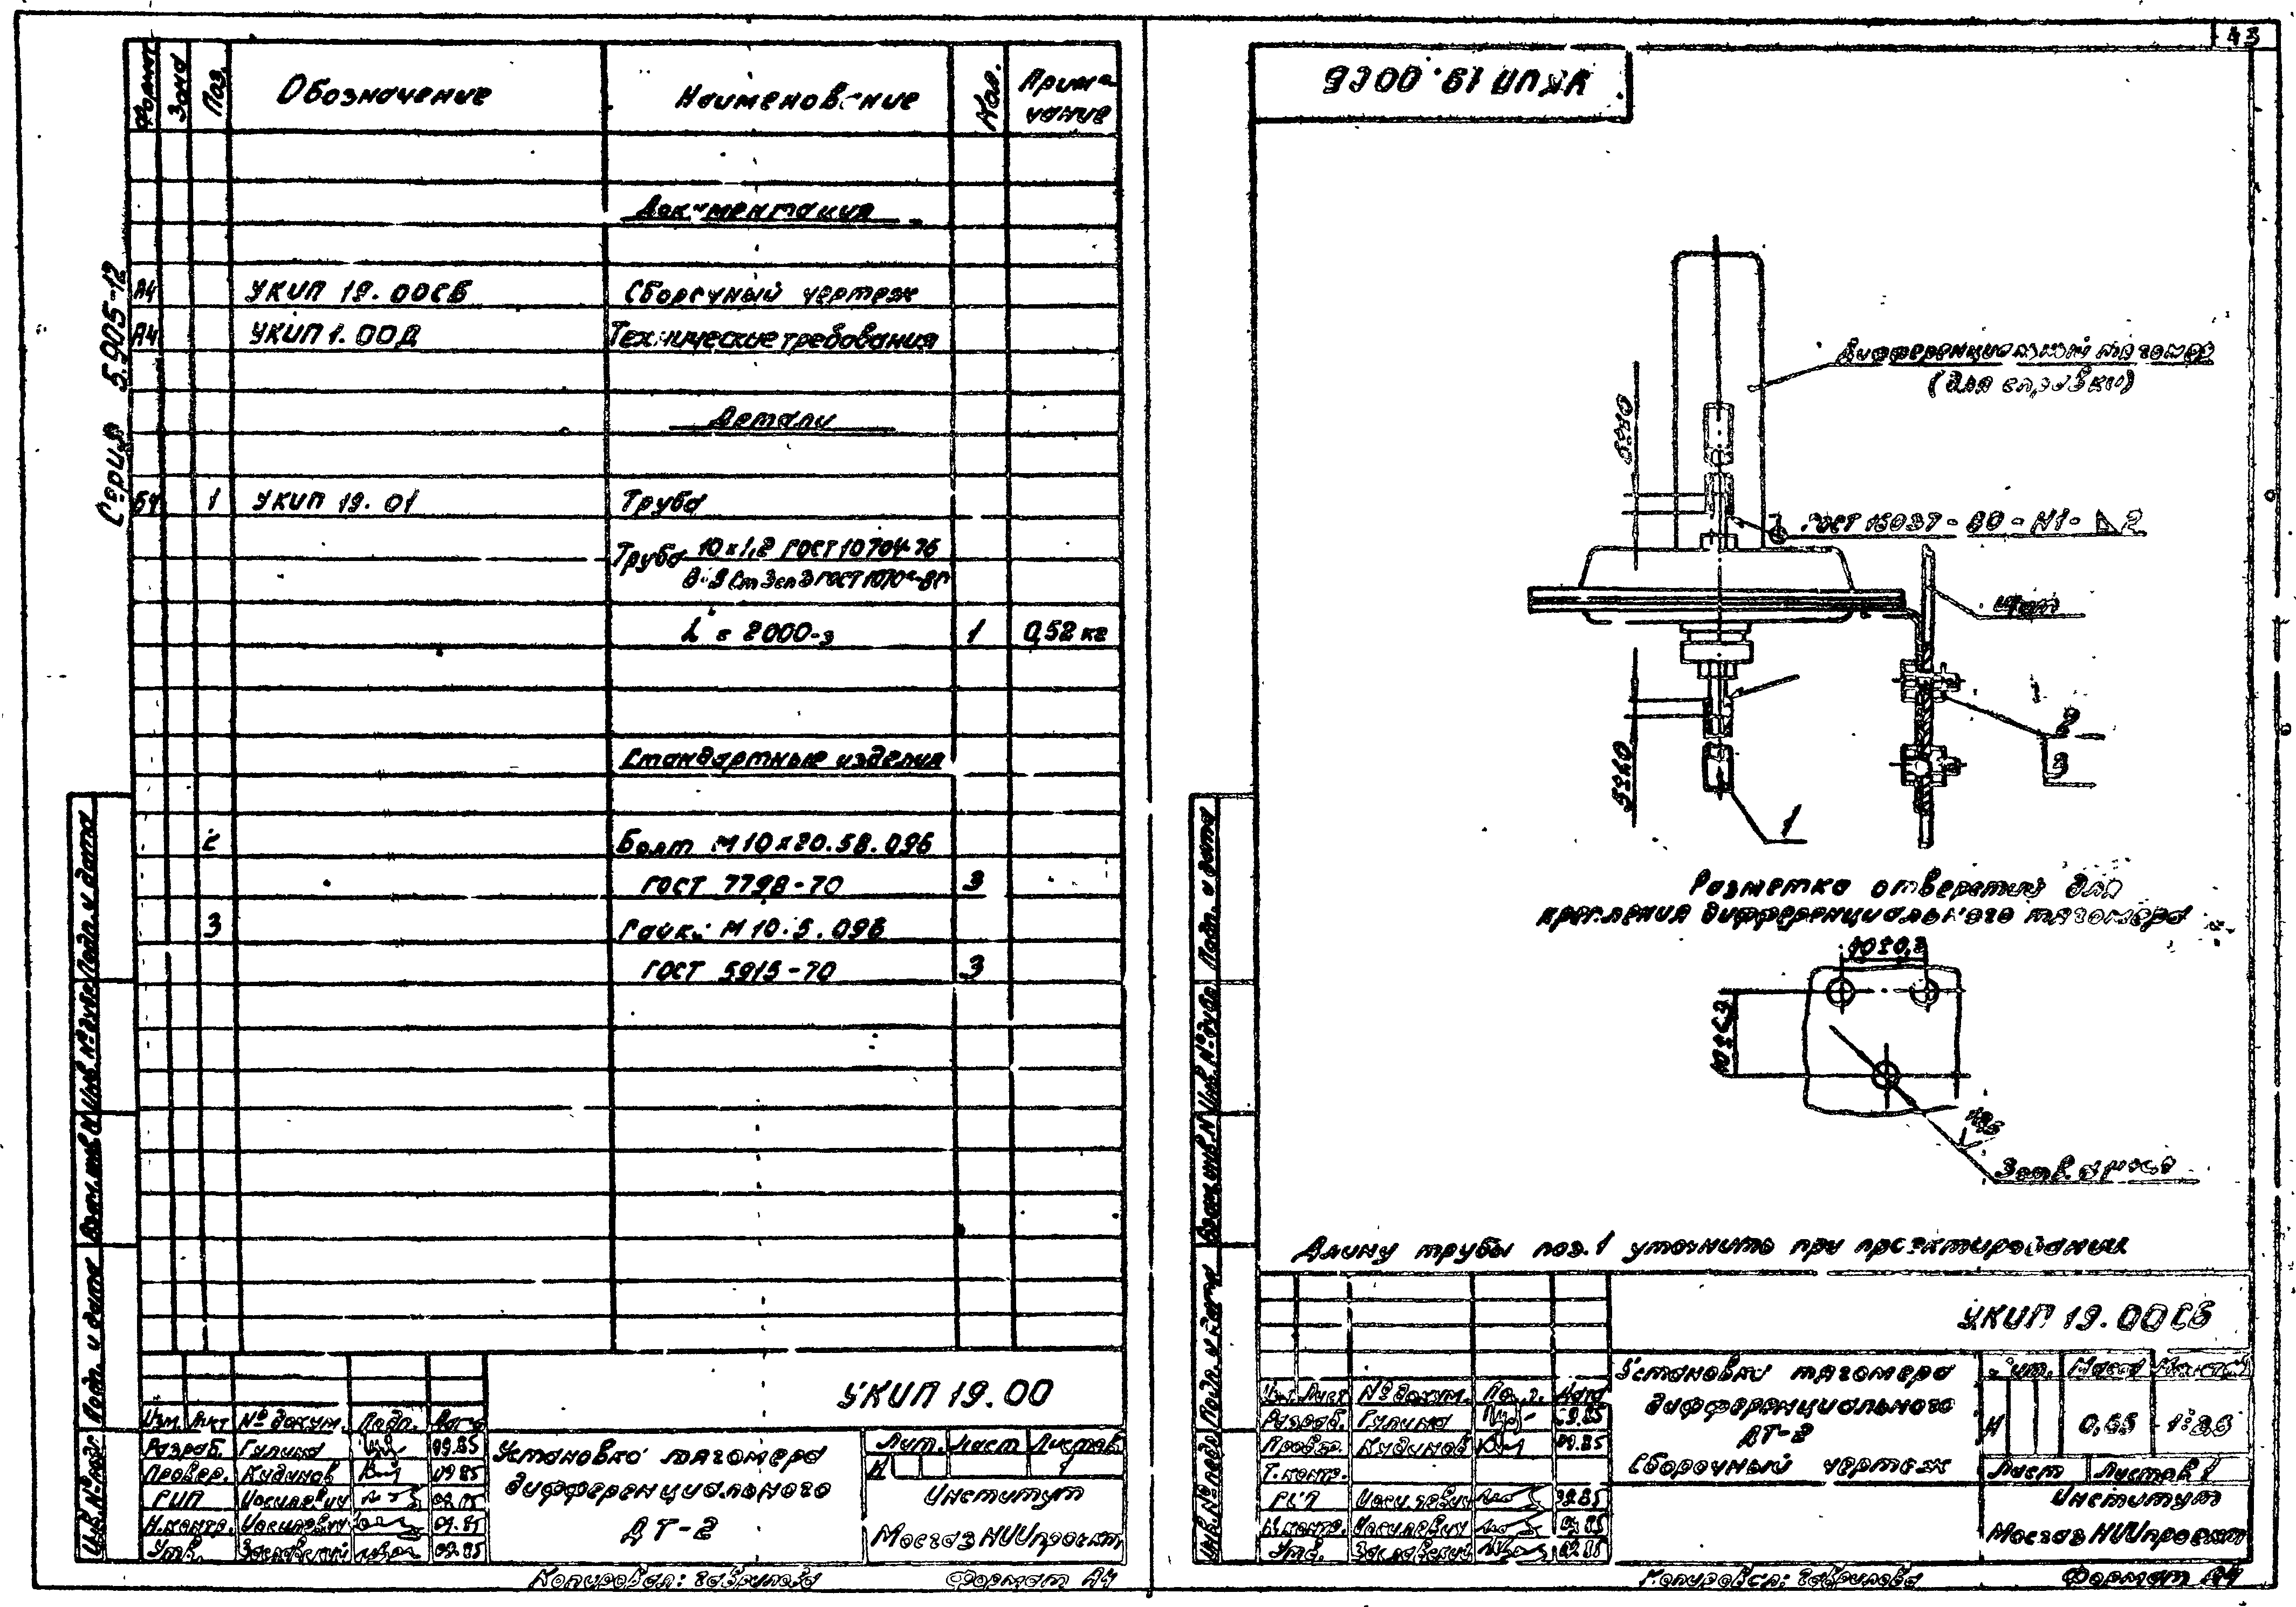 Серия 5.905-12
Формат Зона Поз. Обозначение Наименование Кол. Приме-
чание
Документация
А4 УКИП 19.00СБ Сборочный чертеж
А4 УКИП 1.00Д Технические требования
Детали
БЧ 1 УКИП 19.01 Труба
Труба 10х1,2 ГОСТ 10704-76
L = 2000-э 1 0,52 кг
Стандартные изделия
2 Болт М10х20.58.096
ГОСТ 7798-70 3
3 Гайка М10.5.096
ГОСТ 5915-70 3
Инв.№подл. Подп. и дата Взам.инв.№ Инв.№дубл. Подп. и дата
УКИП 19.00
Изм. Лист №докум. Подп. Дата
Разраб. Гулина 09.85
Провер. Кудинов 09.85
ГИП 09.85
Н.контр. 09.85
Утв. Заславский 09.85
Установка тягомера
дифференциального
ДТ-2
Лит. Лист Листов
И 1
Институт
МосгазНИИпроект
Копировал: Гаврилова Формат А4
43
УКИП 19.00СБ
Дифференциальный тягомер
(для справки)
ГОСТ 16037-80-Н1-◺2
Щит
2
3
1
Разметка отверстий для
крепления дифференциального тягомера
40±0,3
40±0,3
3 отв.
Длину трубы поз.1 уточнить при проектировании
Инв.№подл. Подп. и дата Взам.инв.№ Инв.№дубл. Подп. и дата
УКИП 19.00СБ
Изм. Лист №докум. Подп. Дата
Разраб. Гулина 09.85
Провер. Кудинов 09.85
Т.контр.
ГИП 09.85
Н.контр. 09.85
Утв. Заславский 09.85
Установка тягомера
дифференциального
ДТ-2
Сборочный чертеж
Лит. Масса Масштаб
И
Лист Листов 1
Институт
МосгазНИИпроект
Копировал: Гаврилова Формат А4